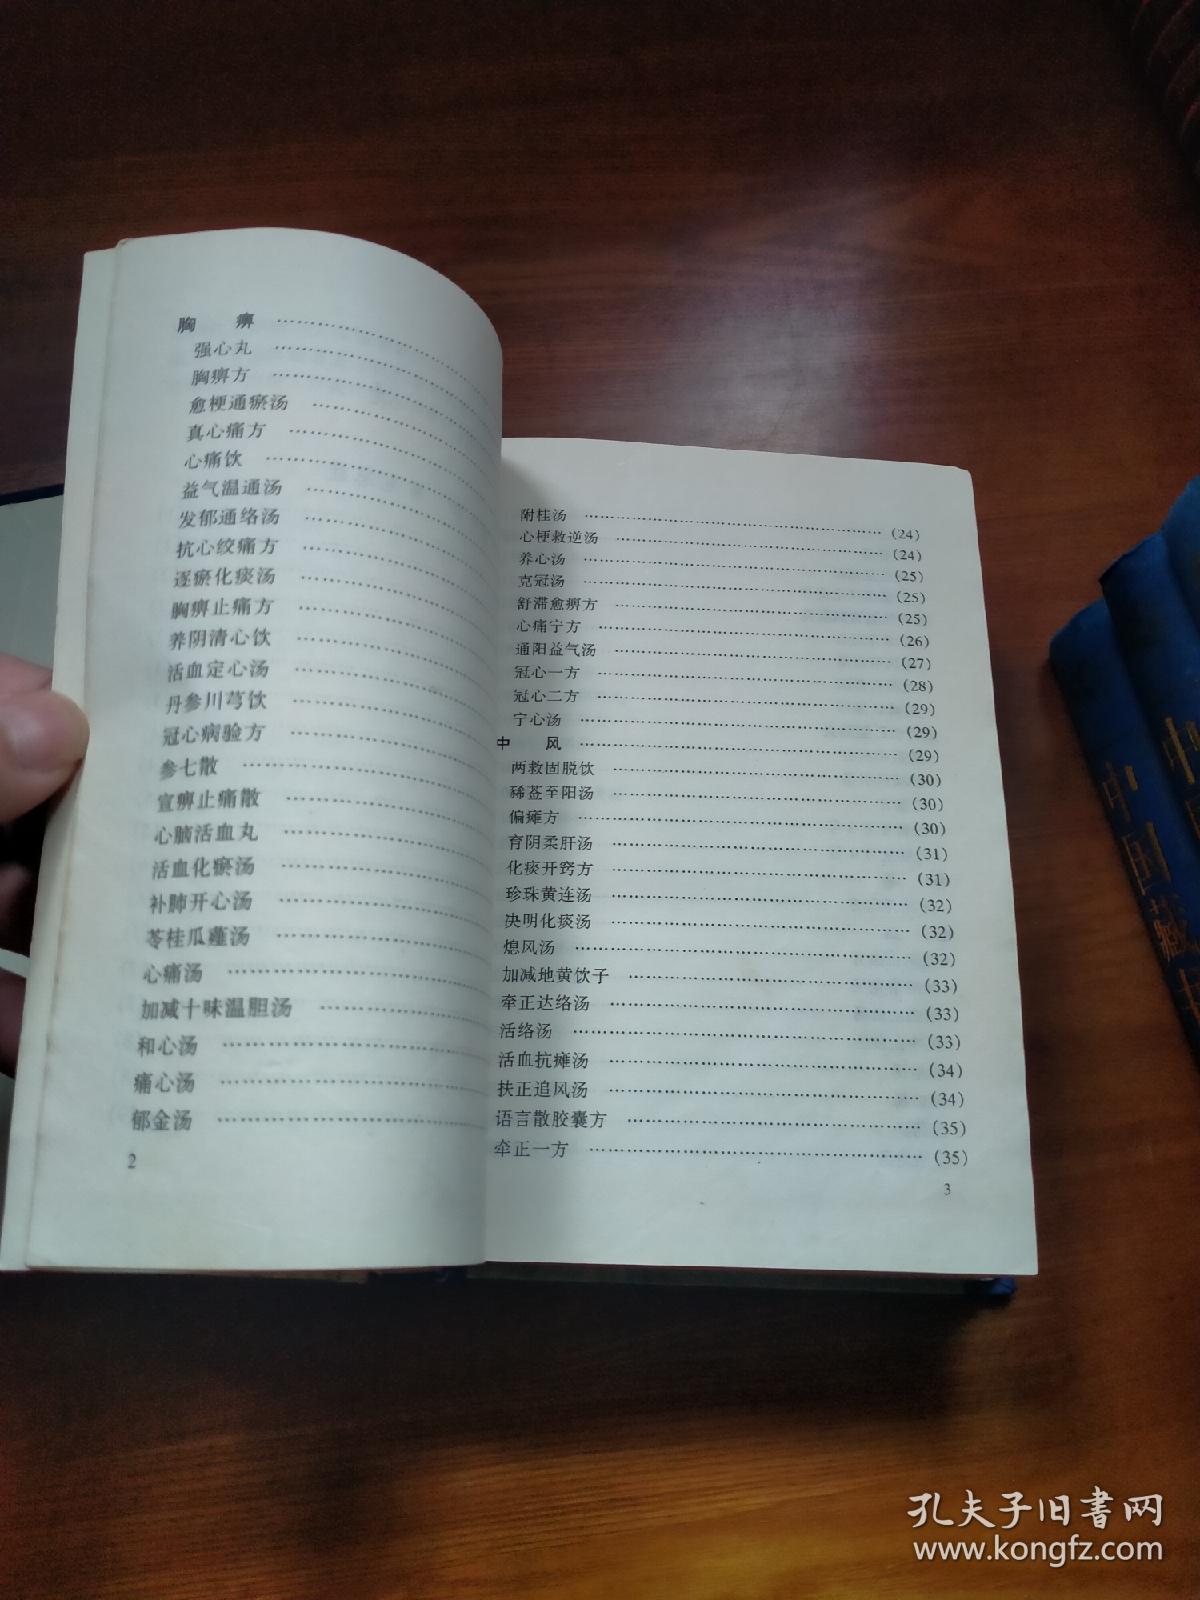 胸　痹 ……………
强心丸 ……………
胸痹方 ……………
愈梗通瘀汤 ……………
真心痛方 ……………
心痛饮 ……………
益气温通汤 ……………
发郁通络汤 ……………
抗心绞痛方 ……………
逐瘀化痰汤 ……………
胸痹止痛方 ……………
养阴清心饮 ……………
活血定心汤 ……………
丹参川芎饮 ……………
冠心病验方 ……………
参七散 ……………
宣痹止痛散 ……………
心脑活血丸 ……………
活血化瘀汤 ……………
补肺开心汤 ……………
苓桂瓜蒌汤 ……………
心痛汤 ……………
加减十味温胆汤 ……………
和心汤 ……………
痛心汤 ……………
郁金汤 ……………
2
附桂汤 ……………(24)
心梗救逆汤 ……………(24)
养心汤 ……………(25)
克冠汤 ……………(25)
舒滞愈痹方 ……………(25)
心痛宁方 ……………(26)
通阳益气汤 ……………(27)
冠心一方 ……………(28)
冠心二方 ……………(29)
宁心汤 ……………(29)
中　风 ……………(29)
两救固脱饮 ……………(30)
稀莶至阳汤 ……………(30)
偏瘫方 ……………(30)
育阴柔肝汤 ……………(31)
化痰开窍方 ……………(31)
珍珠黄连汤 ……………(32)
决明化痰汤 ……………(32)
熄风汤 ……………(32)
加减地黄饮子 ……………(33)
牵正达络汤 ……………(33)
活络汤 ……………(33)
活血抗瘫汤 ……………(34)
扶正追风汤 ……………(34)
语言散胶囊方 ……………(35)
牵正一方 ……………(35)
3
中国藏
中
孔夫子旧书网
www.kongfz.com